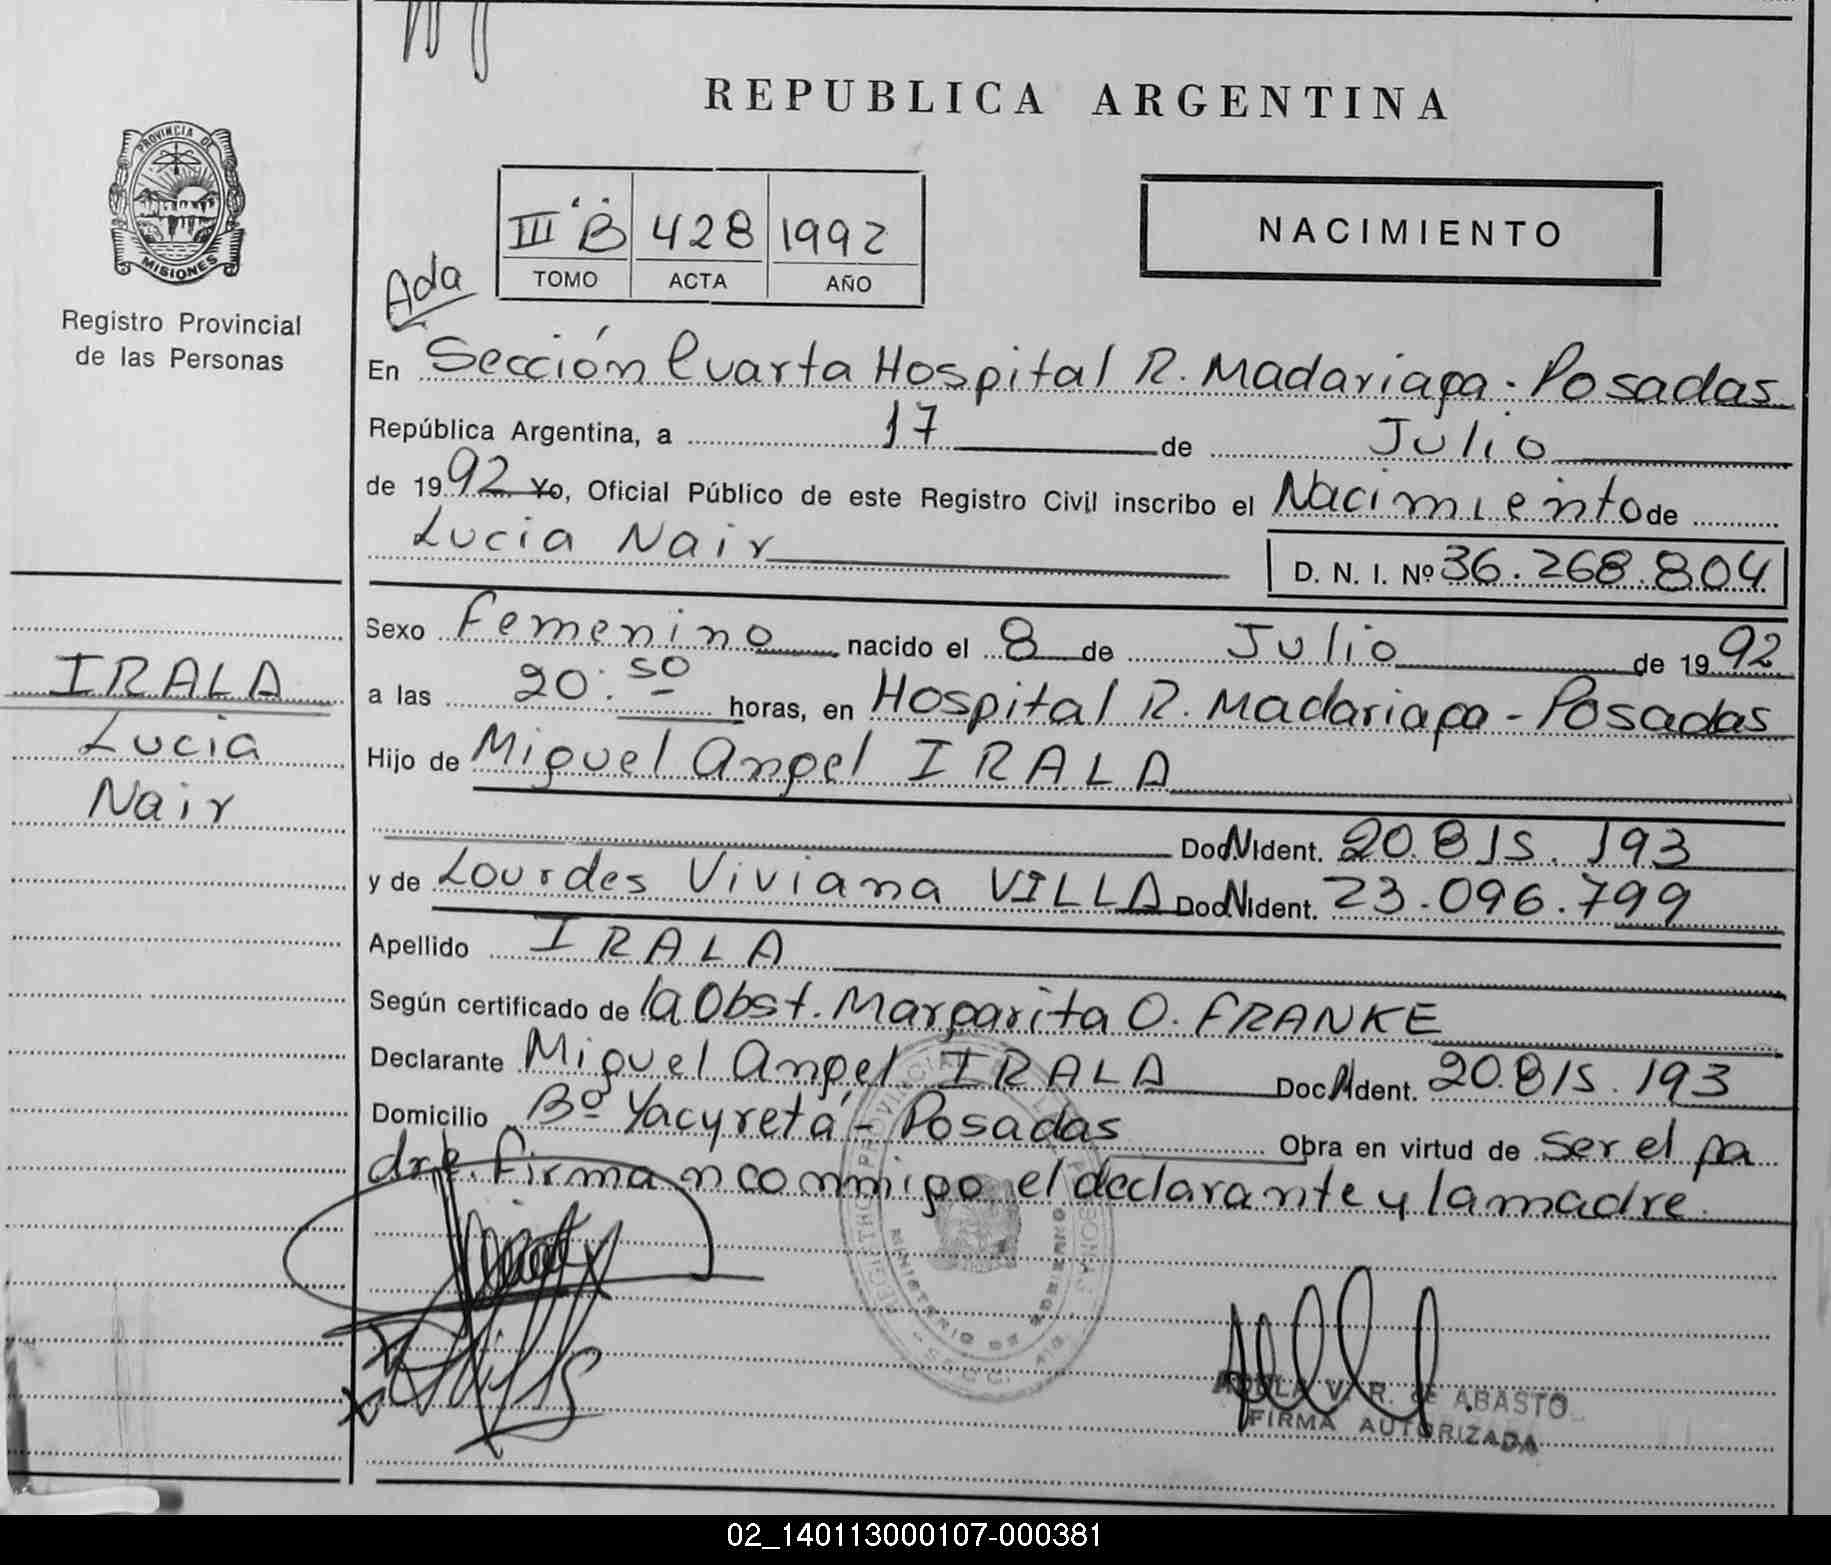 REPUBLICA ARGENTINA
PROVINCIA DE
MISIONES
Registro Provincial
de las Personas
III "B" 428 1992
TOMO ACTA AÑO
NACIMIENTO
Ada
En Sección Cuarta Hospital R. Madariaga - Posadas
República Argentina, a 17 de Julio
de 1992 Yo, Oficial Público de este Registro Civil inscribo el Nacimiento de
Lucia Nair
D. N. I. Nº 36.268.804
Sexo Femenino nacido el 8 de Julio de 1992
a las 20:50 horas, en Hospital R. Madariaga - Posadas
Hijo de Miguel Angel IRALA
Doc. N. Ident. 20.815.193
y de Lourdes Viviana VILLA Doc. N. Ident. 23.096.799
Apellido IRALA
Según certificado de la Obst. Margarita O. FRANKE
Declarante Miguel Angel IRALA Doc. N. Ident. 20.815.193
Domicilio Bº Yacyretá - Posadas Obra en virtud de ser el pa
dre. Firman conmigo el declarante y la madre.
IRALA
Lucia
Nair
REGISTRO PROVINCIAL DE LAS PERSONAS
MINISTERIO DE GOBIERNO
ADELA V. R. de ABASTO
FIRMA AUTORIZADA
02_140113000107-000381